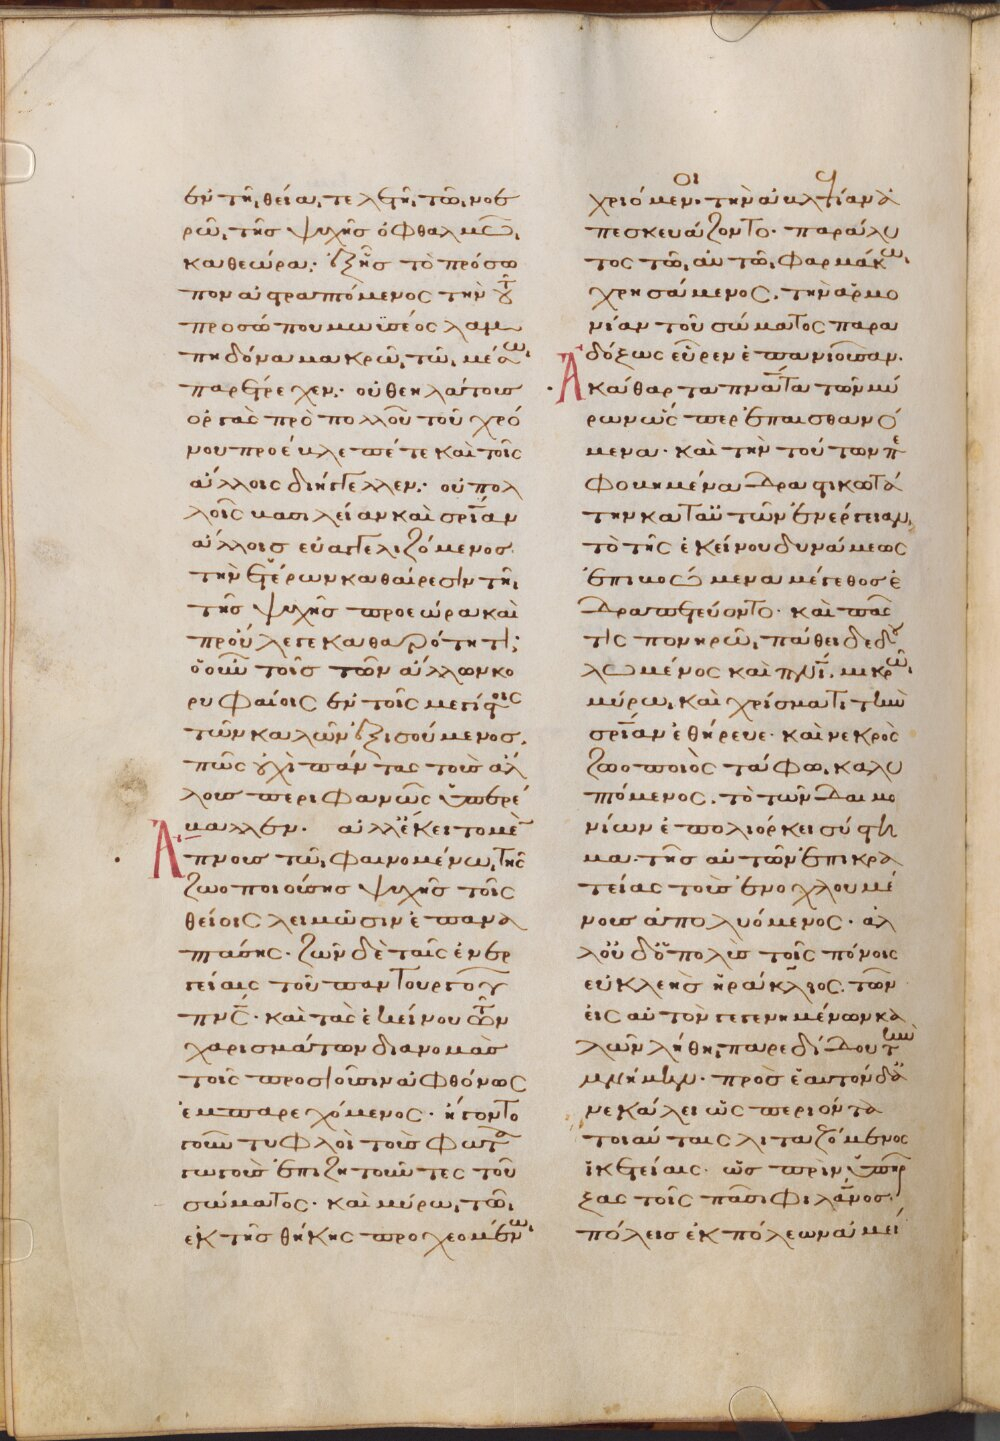 ἐν τῆι θείαι τελετῆι τῶι νοε
ρῶι τῆς ψυχῆς ὀφθαλμῶι
καθεώρα· ἐξ ἧς τὸ πρόσω
πον ἀστραπτόμενος τὴν τοῦ
προσώπου μωϊσέος λαμ
πηδόνα μακρῶι τῶι μέσωι
παρέτρεχεν· οὐ θεηλάτοις
ὀργὰς πρὸ πολλοῦ τοῦ χρό
νου προέκλεπτέ τε καὶ τοῖς
ἄλλοις διήγγελλεν· οὐ πολ
λοῖς βασιλείαν καὶ σωτηρίαν
ἄλλοις εὐαγγελιζόμενος
τὴν ἑτέρων καθαίρεσιν τῆι
τῆς ψυχῆς προεώρα καὶ
προύλεγε καθαρότητι;
ὁ οὖν τοῖς τῶν ἄλλων κο
ρυφαίοις ἐν τοῖς μεγίστοις
τῶν καλῶν ἐξισούμενος
πῶς οὐχὶ πάντας τοὺς ἄλ
λους περιφανῶς ὑπερέ
βαλλεν· ἀλλ' ἔκειτο μὲν
ἄπνους τῶι φαινομένωι τῆς
ζωοποιούσης ψυχῆς τοῖς
θείοις λειμῶσιν ἐπανα
πτάσης· ζῶν δὲ ταῖς ἐνερ
γείαις τοῦ παντουργοῦ
πνς· καὶ τὰς ἐκείνου τῶν
χαρισμάτων διανομὰς
τοῖς προσιοῦσιν ἀφθόνως
ἐμπαρεχόμενος· ἤγοντο
γοῦν τυφλοὶ τοὺς φωτα
γωγοὺς ἐπιζητοῦντες τοῦ
σώματος· καὶ μύρωι τῶι
ἐκ τῆς θήκης προχεομένωι
χριόμενοι· τὴν αἰτίαν ἀ
πεσκευάζοντο· παράλυ
τος τῶι αὐτῶι φαρμάκωι
χρησάμενος, τὴν ἁρμο
νίαν τοῦ σώματος παρα
δόξως εὗρεν ἐπανιοῦσαν.
ἀκάθαρτα πνατα τῶν μύ
ρων ὥσπερ ἐπαισθανό
μενα· καὶ τὴν τούτων πε
φοβημένα δραστικωτά
την κατ' αὐτῶν ἐνέργειαν,
τὸ τῆς ἐκείνου δυνάμεως
ἐπιβοώμενα μέγεθος ἐ
δραπετεύοντο· καὶ πᾶς
τις πονηρῶι πάθει δεδου
λωμένος καὶ πνι, μικρῶι
μύρωι καὶ χρίσματι τὴν
σρίαν ἐθήρευε· καὶ νεκρὸς
ζωοποιὸς τάφωι καλυ
πτόμενος, τὸ τῶν δαιμο
νίων ἐπολιόρκει σύστη
μα· τῆς αὐτῶν ἐπικρα
τείας τοὺς ἐνοχλουμέ
νους ἀπολυόμενος· ἀλ
λ' οὐδ' ὁ πολὺς τοῖς πόνοις
εὐκλεὴς ἡράκλειος, τῶν
εἰς αὐτὸν γεγενημένων κα
λῶν λήθηι παρεδίδου τὴν
μνήμην· πρὸς ἑαυτὸν δὲ
ἀνεκάλει ὡς περιόντα
τοιαύταις λιταζόμενος
ἱκετείαις· ὡς πρὶν ὑπῆρ
ξας τοῖς πᾶσι φιλάνος·
πόλεις ἐκ πόλεων ἀμεί